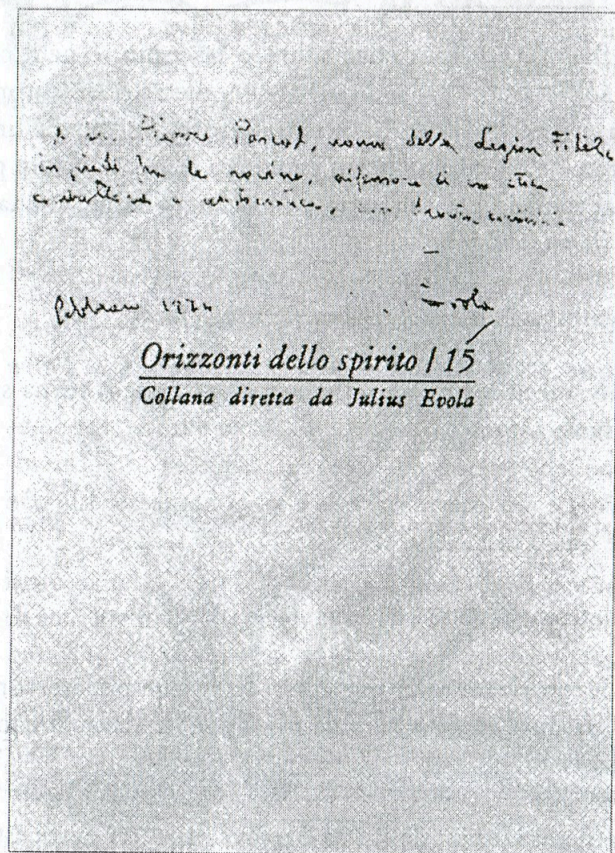 Pierre Pascal, uomo della Legion
in piedi tra le rovine, difensore di
febbraio Evola
Orizzonti dello spirito / 15
Collana diretta da Julius Evola